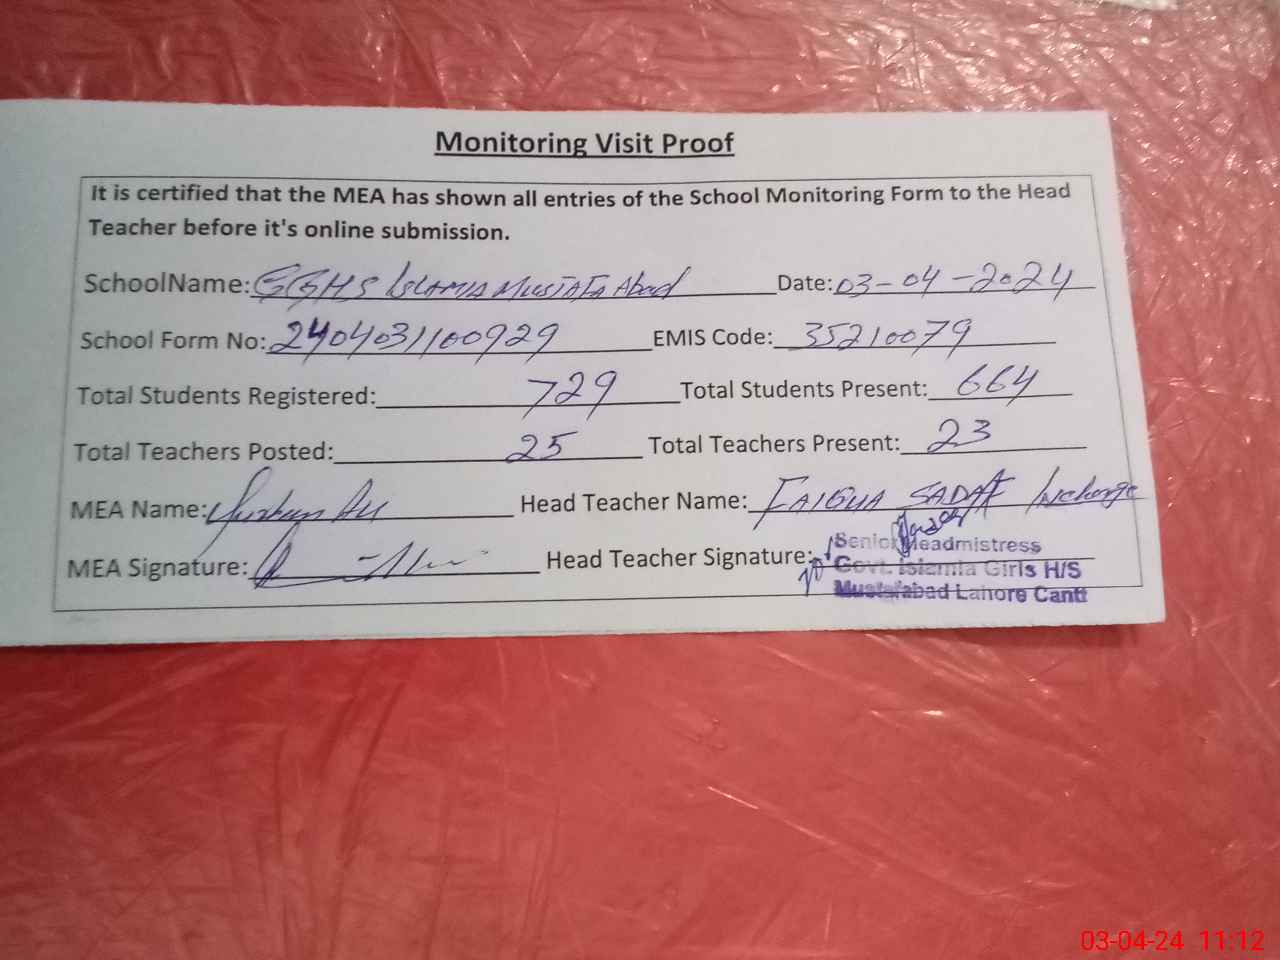 Monitoring Visit Proof
It is certified that the MEA has shown all entries of the School Monitoring Form to the Head
Teacher before it's online submission.
SchoolName: GGHS Islamia Mustafa Abad Date: 03-04-2024
School Form No: 2404031100929 EMIS Code: 35210079
Total Students Registered: 729 Total Students Present: 664
Total Teachers Posted: 25 Total Teachers Present: 23
MEA Name: Ali Head Teacher Name: FAIQUA SADAF Incharge
MEA Signature: Head Teacher Signature:
Senior Headmistress
Govt. Islamia Girls H/S
Mustafabad Lahore Cantt
03-04-24 11:12